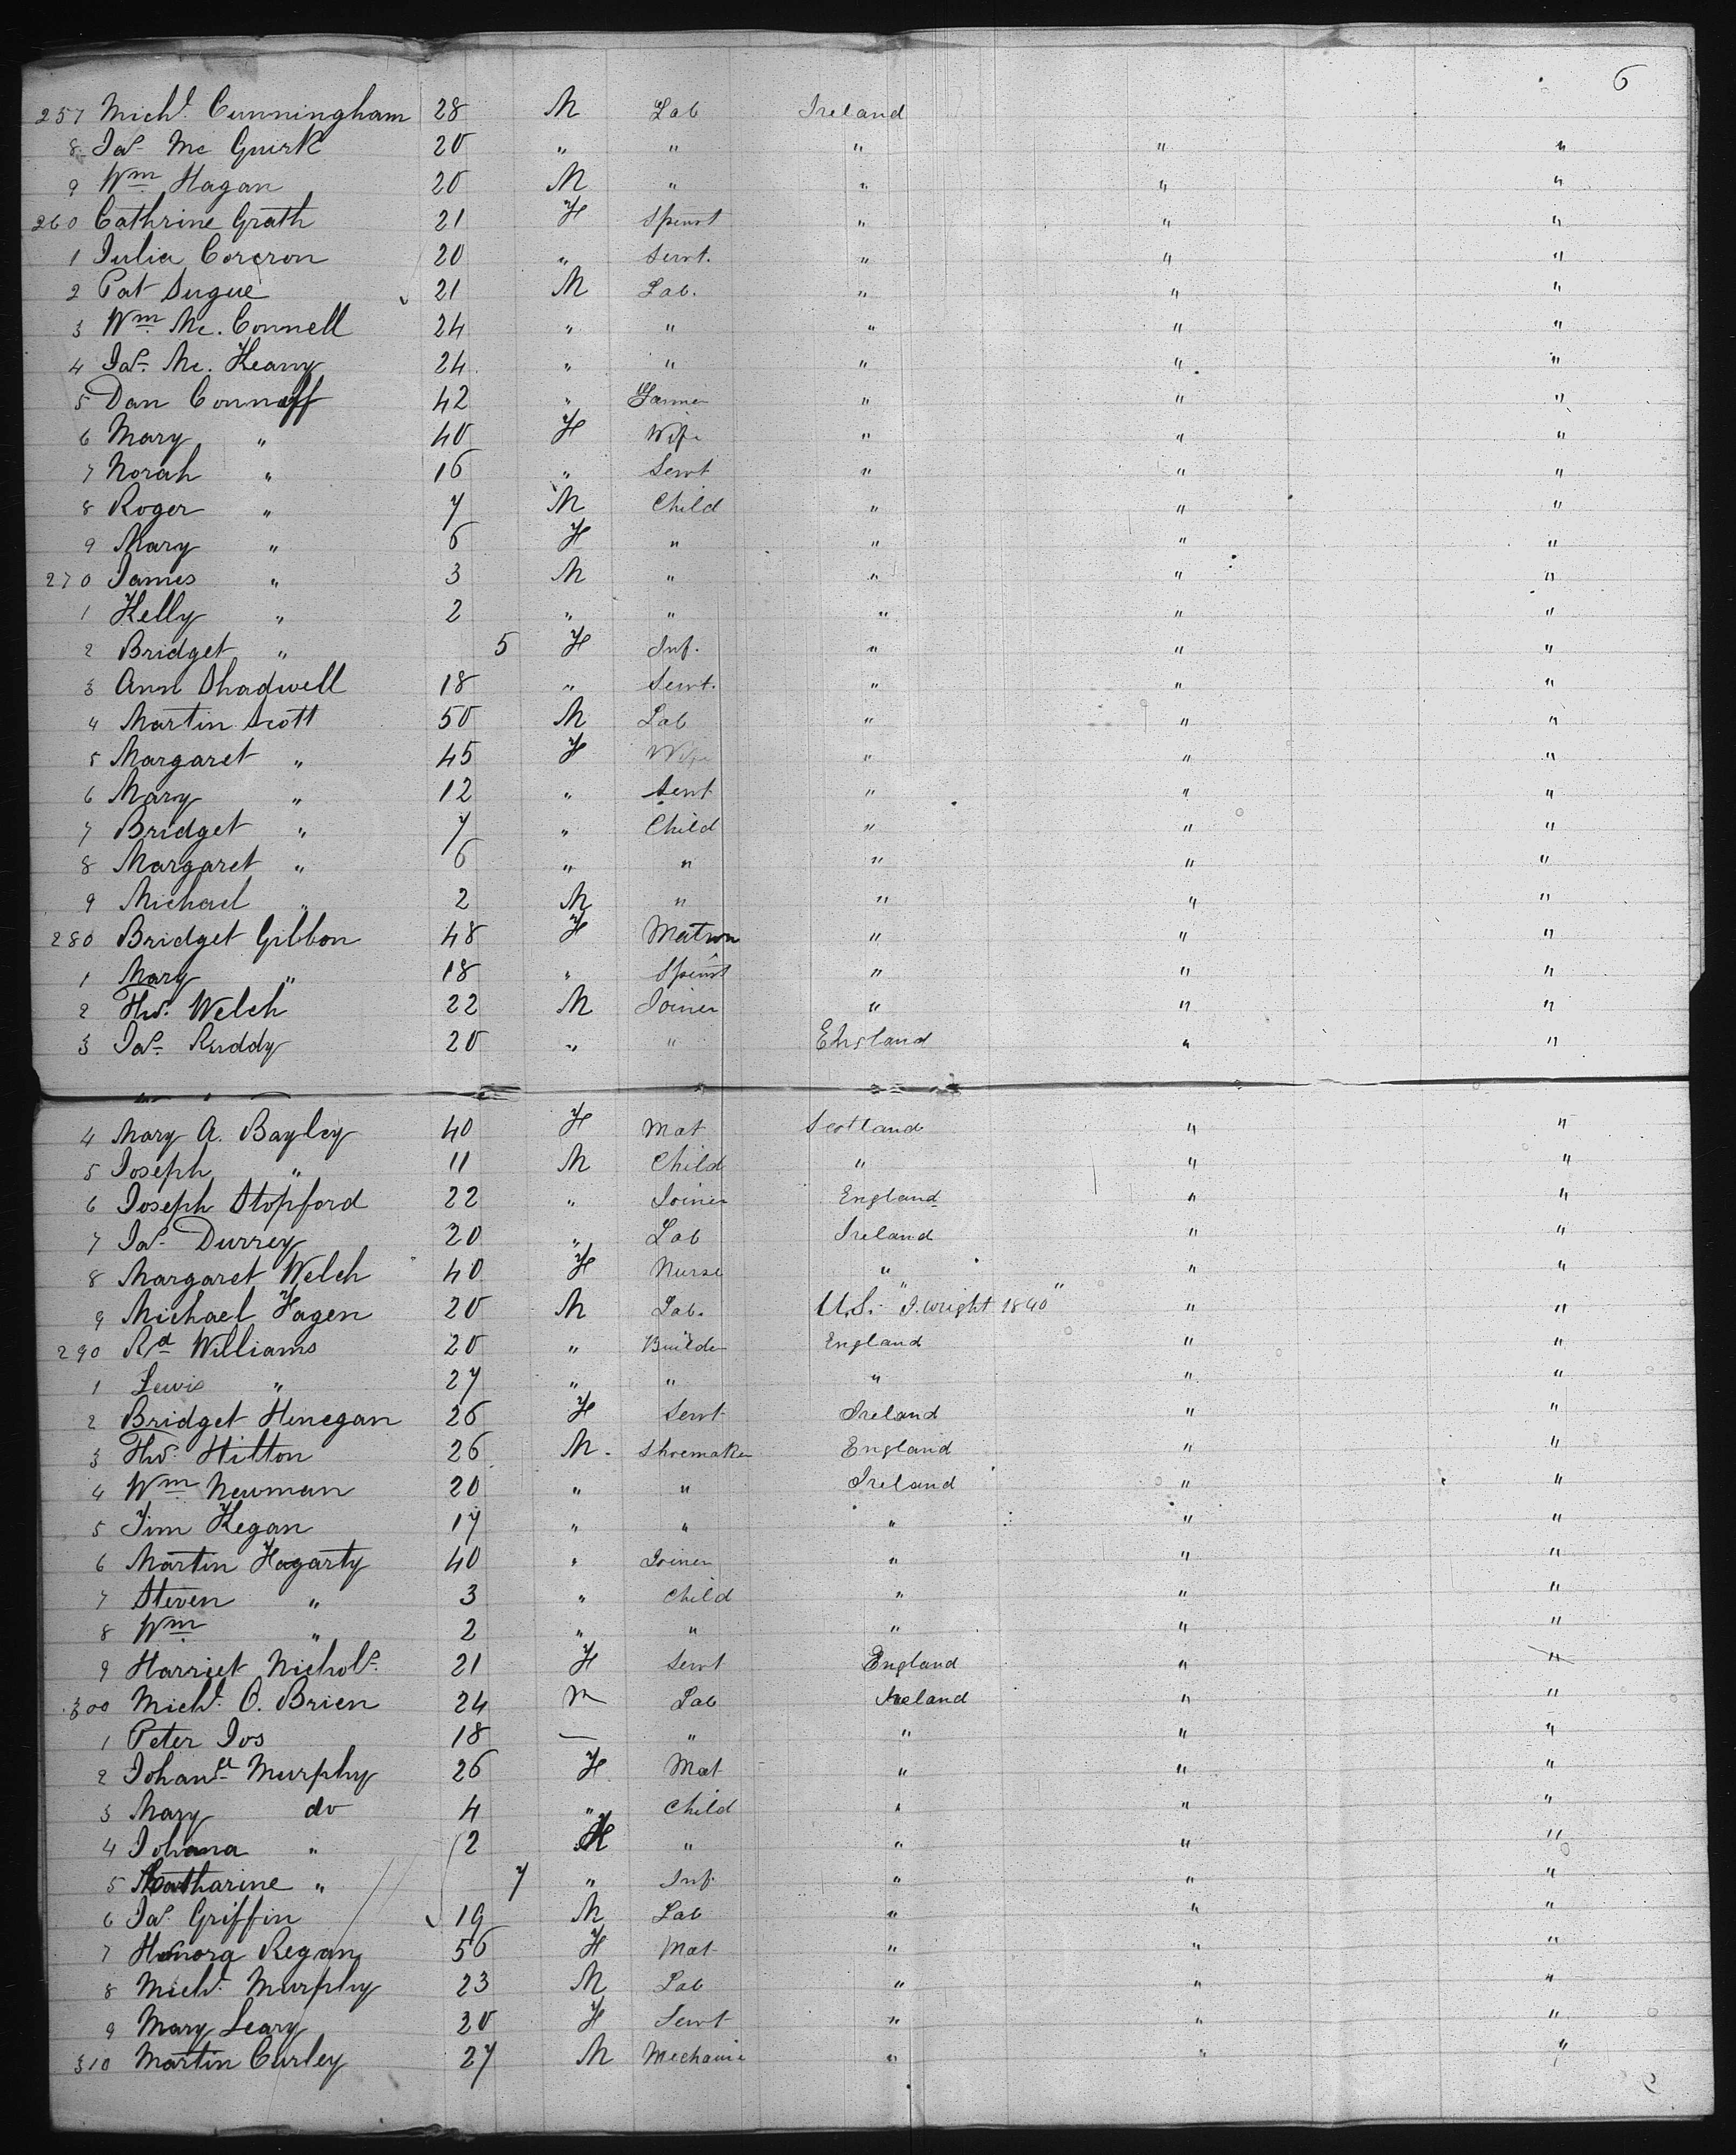 6
257 Michl. Cunningham 28 M Lab Ireland
8 Jas. Mc Guirk 20 " " " " "
9 Wm. Hagan 20 M " " " "
260 Cathrine Grath 21 F Spinst " " "
1 Julia Corcron 20 " Servt. " " "
2 Pat Sugue 21 M Lab. " " "
3 Wm. Mc. Connell 24 " " " " "
4 Jas. Mc. Keany 24 " " " " "
5 Dan Connoff 42 " Farmer " " "
6 Mary " 40 F Wife " " "
7 Norah " 16 " Servt " " "
8 Roger " 7 M Child " " "
9 Mary " 6 F " " " "
270 James " 3 M " " " "
1 Kelly " 2 " " " " "
2 Bridget " 5 F Inf. " " "
3 Ann Shadwell 18 " Servt. " " "
4 Martin Scott 50 M Lab " " "
5 Margaret " 45 F Wife " " "
6 Mary " 12 " Servt " " "
7 Bridget " 7 " Child " " "
8 Margaret " 6 " " " " "
9 Michael " 2 M " " " "
280 Bridget Gibbon 48 F Matron " " "
1 Mary " 18 " Spinst " " "
2 Thos. Welch 22 M Joiner " " "
3 Jas. Ruddy 20 " " England " "
4 Mary A. Bayley 40 F Mat Scotland " "
5 Joseph " 11 M Child " " "
6 Joseph Stopford 22 " Joiner England " "
7 Jas. Durrey 20 " Lab Ireland " "
8 Margaret Welch 40 F Nurse " " "
9 Michael Fagen 20 M Lab. U.S. "J. Wright 1840" " "
290 Rd Williams 20 " Builder England " "
1 Lewis " 27 " " " " "
2 Bridget Henegan 26 F Servt Ireland " "
3 Thos. Hilton 26 M. Shoemaker England " "
4 Wm. Newman 20 " " Ireland " "
5 Tim Kegan 17 " " " " "
6 Martin Hagarty 40 " Joiner " " "
7 Steven " 3 " Child " " "
8 Wm. " 2 " " " " "
9 Harriet Nichols. 21 F Servt England " "
300 Michl. O. Brien 24 M Lab Ireland " "
1 Peter Jos 18 — " " " "
2 Murphy 26 F Mat " " "
3 Mary do 4 " Child " " "
4 Johana " 2 F " " " "
5 Katharine " 7 " Inf. " " "
6 Jas. Griffin 19 M Lab " " "
7 Honora Regan 56 F Mat " " "
8 Michl. Murphy 23 M Lab " " "
9 Mary Leary 20 F Servt " " "
310 Martin Curley 27 M Mechanic " " "